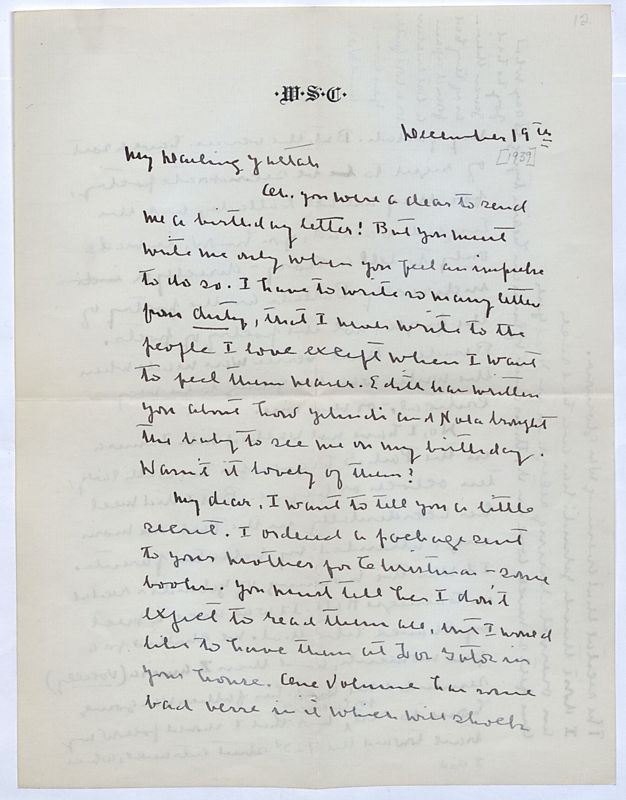 12
·W·S·C·
December 19th
[1939]
My Darling Yaltah
Oh, you were a dear to send
me a birthday letter! But you must
write me only when you feel an impulse
to do so. I have to write so many letters
from duty, that I never write to the
people I love except when I want
to feel them nearer. Edith has written
you about how Yehudi and Nola brought
the baby to see me on my birthday.
Wasn't it lovely of them?
My dear, I want to tell you a little
secret. I ordered a package sent
to your mother for Christmas - some
books. You must tell her I don't
expect to read them all, but I would
like to have them at Los Gatos in
your house. One volume has some
bad verse in it which will shock